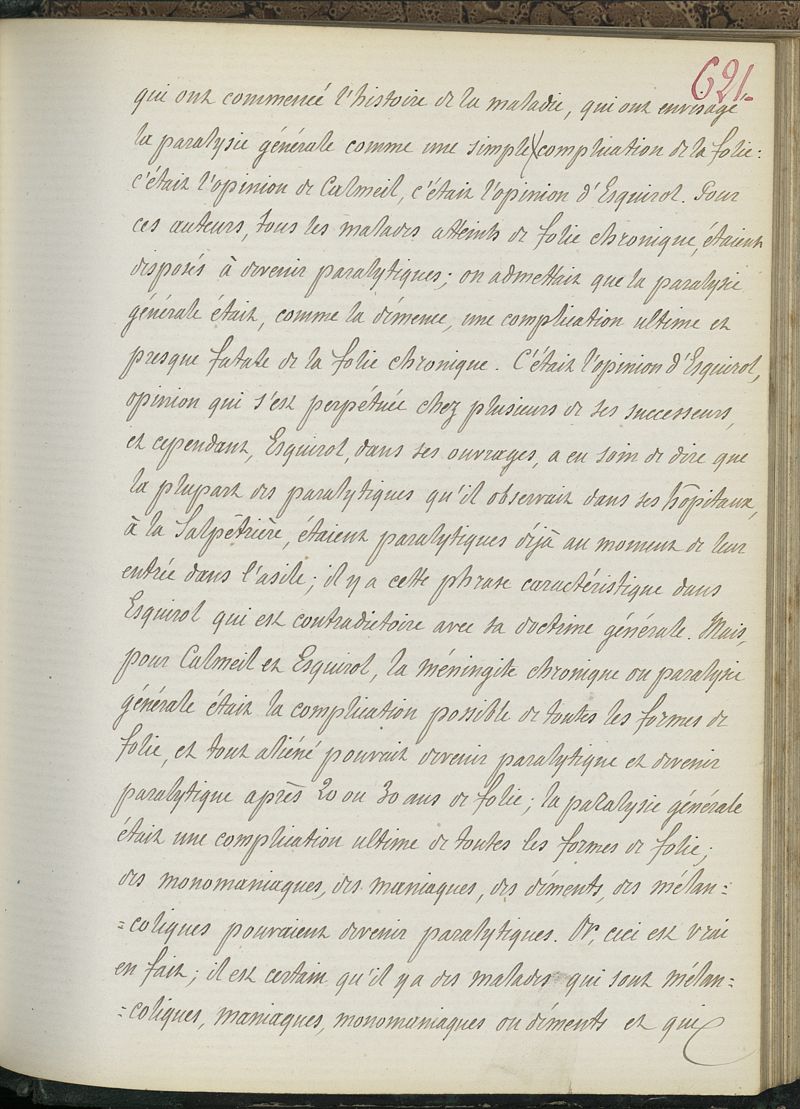 621.
qui ont commencé l'histoire de la maladie, qui ont envisagé
la paralysie générale comme une simple complication de la folie :
c'était l'opinion de Calmeil, c'était l'opinion d'Esquirol. Pour
ces auteurs, tous les malades atteints de folie chronique, étaient
disposés à devenir paralytiques ; on admettait que la paralysie
générale était, comme la démence, une complication ultime et
presque fatale de la folie chronique. C'était l'opinion d'Esquirol,
opinion qui s'est perpétuée chez plusieurs de ses successeurs,
et cependant, Esquirol, dans ses ouvrages, a eu soin de dire que
la plupart des paralytiques qu'il observait dans ses hôpitaux,
à la Salpêtrière, étaient paralytiques déjà au moment de leur
entrée dans l'asile ; il y a cette phrase caractéristique dans
Esquirol qui est contradictoire avec sa doctrine générale. Mais,
pour Calmeil et Esquirol, la méningite chronique ou paralysie
générale était la complication possible de toutes les formes de
folie, et tout aliéné pouvait devenir paralytique et devenir
paralytique après 20 ou 30 ans de folie ; la paralysie générale
était une complication ultime de toutes les formes de folie ;
des monomaniaques, des maniaques, des déments, des mélan=
=coliques pouvaient devenir paralytiques. Or, ceci est vrai
en fait ; il est certain qu'il y a des malades qui sont mélan=
=coliques, maniaques, monomaniaques ou déments et qui